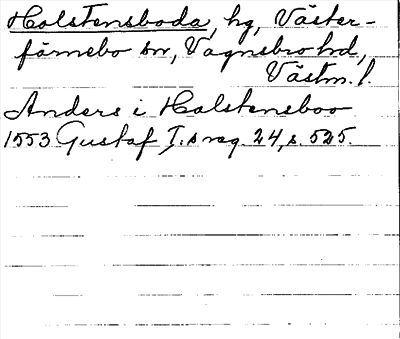 Holstensboda, hg, Väster-
färnebo sn, Vagnsbro hd,
Västm. l.
Anders i Holstensboo
1553 Gustaf I:s reg. 24, s. 525.